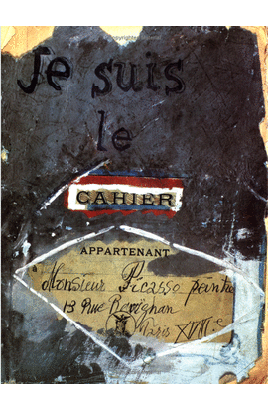 Je suis
le
CAHIER
APPARTENANT
à Monsieur Picasso peintre
13 Rue Ravignan
Paris XVIIIe